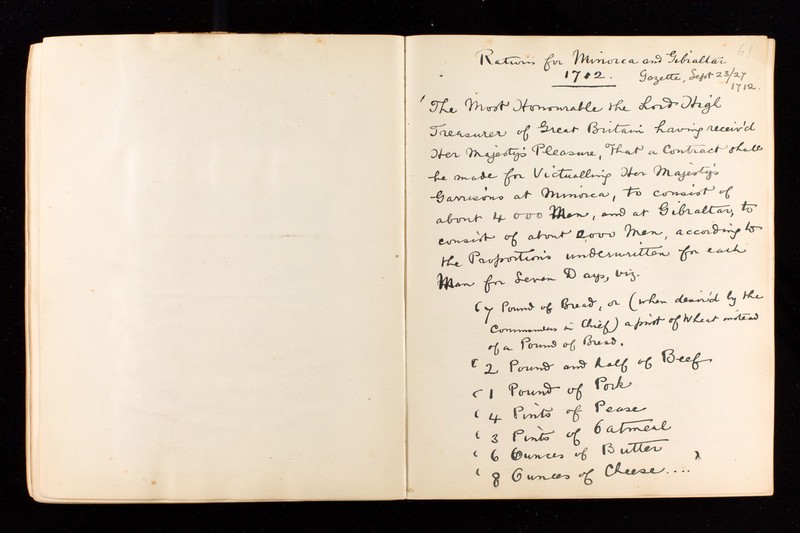 61
Rations for Minorca and Gibraltar
1712. Gazette, Sept 23/27
1712.
'The Most Honourable the Lord High
Treasurer of Great Britain having receiv'd
Her Majesty's Pleasure, That a Contract shall
be made for Victualling Her Majesty's
Garrisons at Minorca, to consist of
about 4000 Men, and at Gibraltar, to
consist of about 2000 Men, according to
the Proportions underwritten for each
Man for Seven Days, viz.
'7 Pound of Bread, or (when desir'd by the
Commanders in Chief) a pint of Wheat instead
of a Pound of Bread.
'2 Pound and half of Beef
'1 Pound of Pork
'4 Pints of Pease
'3 Pints of Oatmeal
'6 Ounces of Butter
'8 Ounces of Cheese....'